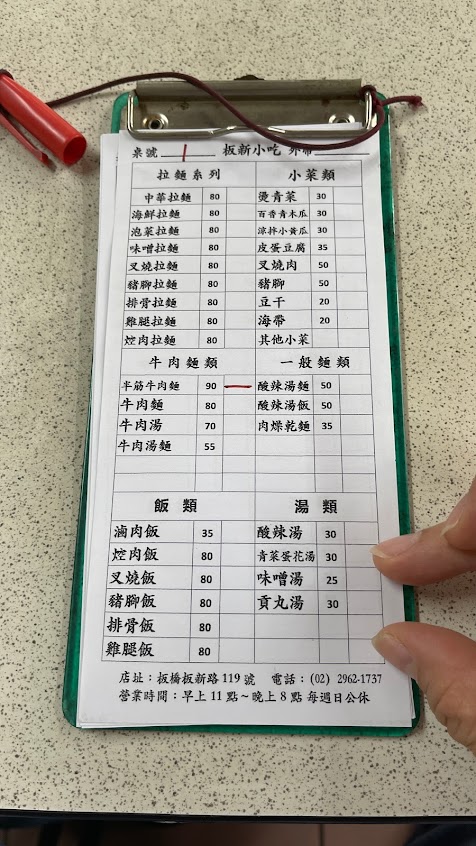 桌號 板新小吃 外帶
拉麵系列 小菜類
中華拉麵 80 燙青菜 30
海鮮拉麵 80 百香青木瓜 30
泡菜拉麵 80 涼拌小黃瓜 30
味噌拉麵 80 皮蛋豆腐 35
叉燒拉麵 80 叉燒肉 50
豬腳拉麵 80 豬腳 50
排骨拉麵 80 豆干 20
雞腿拉麵 80 海帶 20
焢肉拉麵 80 其他小菜
牛肉麵類 一般麵類
半筋牛肉麵 90 酸辣湯麵 50
牛肉麵 80 酸辣湯飯 50
牛肉湯 70 肉燥乾麵 35
牛肉湯麵 55
飯類 湯類
滷肉飯 35 酸辣湯 30
焢肉飯 80 青菜蛋花湯 30
叉燒飯 80 味噌湯 25
豬腳飯 80 貢丸湯 30
排骨飯 80
雞腿飯 80
店址：板橋板新路 119 號 電話：(02) 2962-1737
營業時間：早上 11 點～晚上 8 點 每週日公休